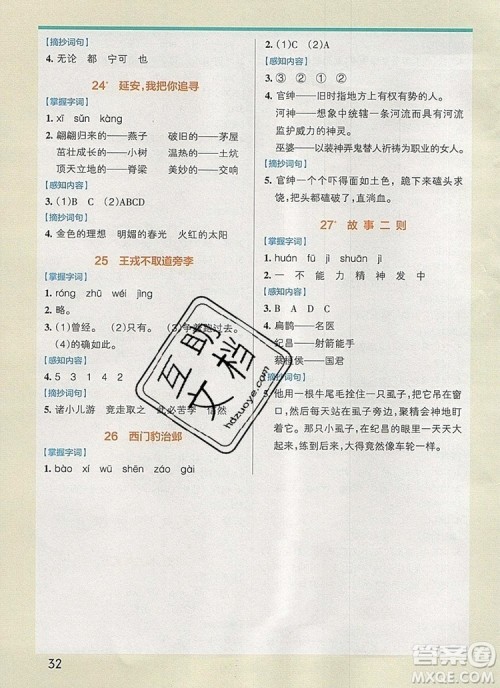 [摘抄词句]
4. 无论 都 宁可 也
24* 延安,我把你追寻
[掌握字词]
1. xī sǔn kàng
2. 翩翩归来的——燕子 破旧的——茅屋
茁壮成长的——小树 温热的——土炕
顶天立地的——脊梁 美妙的——交响
[感知内容]
3. (1)B C (2)ABCD
[摘抄词句]
4. 金色的理想 明媚的春光 火红的太阳
25 王戎不取道旁李
[掌握字词]
1. róng zhū wéi jìng
2. 略。
3. (1)曾经。 (2)只有。 (3)争 过去。
(4)的确如此。
[感知内容]
4. 5 3 1 4 2
[摘抄词句]
5. 诸小儿游 竞走取之 此必苦李 信然
26 西门豹治邺
[掌握字词]
1. bào xí wū shēn záo gài
2. (1)C (2)A
[感知内容]
3. ③ ② ① ④
4. 官绅——旧时指地方上有权有势的人。
河神——想象中统辖一条河流以及有河流
监护威力的神灵。
巫婆——以装神弄鬼替人祈祷为职业的女人。
[摘抄词句]
5. 官绅一个个吓得面如土色,跪下来磕头求
饶,把头都磕破了,直淌血。
27* 故事二则
[掌握字词]
1. huán fǔ jì shuān jì
2. 一 不 能 力 精 神 发 中
[感知内容]
3. B A D C
4. 扁鹊——名医
纪昌——射箭能手
蔡桓侯——国君
[摘抄词句]
5. 他用一根牛尾毛拴住一只虱子,把它吊在
窗口,每天站在虱子旁边,聚精会神地盯
着它。那只小虱子,在纪昌的眼里一天天大
起来,练到后来,大得竟然像车轮一样。
互助文档
hdzuoye.com
32
答案圈
MXQE.COM